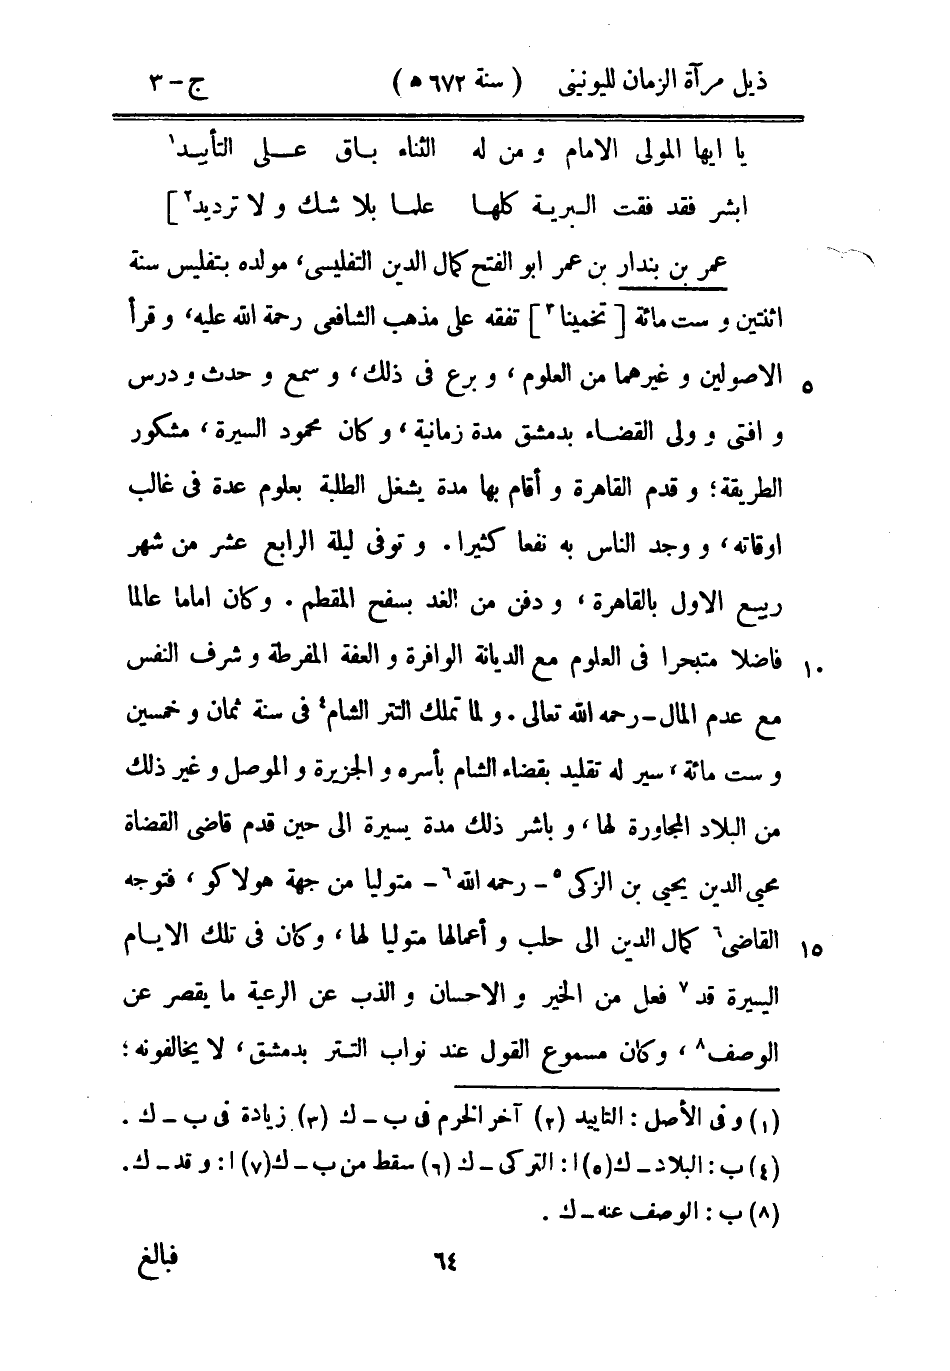 ذيل مرآة الزمان لليونينى ( سنة ٦٧٢ ه ) ج – ٣
يا ايها المولى الامام و من له الثناء بـاق عـــلى التأييـد١
ابشر فقد فقت البريـة كلهـا علمـا بلا شك و لا ترديد٢]
عمر بن بندار بن عمر ابو الفتح كمال الدين التفليسى، مولده بتفليس سنة
اثنتين و ست مائة [ تخمينا٣ ] تفقه على مذهب الشافعى رحمة الله عليه، و قرأ
٥ الاصولين و غيرهما من العلوم، و برع فى ذلك، و سمع و حدث و درس
و افتى و ولى القضـاء بدمشق مدة زمانية، و كان محمود السيرة، مشكور
الطريقة؛ و قدم القاهرة و أقام بها مدة يشغل الطلبة بعلوم عدة فى غالب
اوقاته، و وجد الناس به نفعا كثيرا. و توفى ليلة الرابع عشر من شهر
ربيع الاول بالقاهرة، و دفن من الغد بسفح المقطم. و كان اماما عالما
١٠ فاضلا متبحرا فى العلوم مع الديانة الوافرة و العفة المفرطة و شرف النفس
مع عدم المال – رحمه الله تعالى. و لما تملك التتر الشام٤ فى سنة ثمان و خمسين
و ست مائة، سير له تقليد بقضاء الشام بأسره و الجزيرة و الموصل و غير ذلك
من البلاد المجاورة لها، و باشر ذلك مدة يسيرة الى حين قدم قاضى القضاة
محيى الدين يحيى بن الزكى٥ – رحمه الله٦ – متوليا من جهة هولاكو، فتوجه
١٥ القاضى٦ كمال الدين الى حلب و أعمالها متوليا لها، و كان فى تلك الايـام
اليسيرة قد٧ فعل من الخير و الاحسان و الذب عن الرعية ما يقصر عن
الوصف٨، و كان مسموع القول عند نواب التـتر بدمشق، لا يخالفونه؛
(١) و فى الأصل: التاييد (٢) آخر الخرم فى ب – ك (٣) زيادة فى ب – ك .
(٤) ب: البلاد – ك (٥) ا: التركى – ك (٦) سقط من ب – ك (٧) ا: و قد – ك.
(٨) ب: الوصف عنه – ك .
٦٤ فبالغ